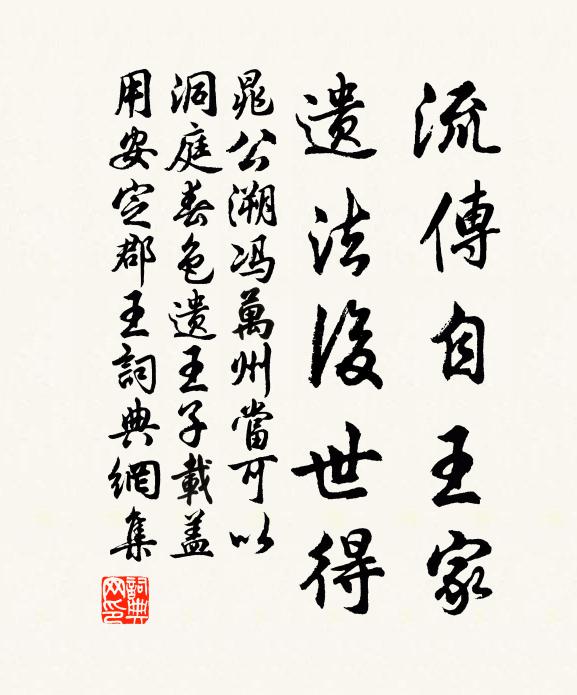 流傳自王家
遺法後世得
晁公溯馮萬州當可以
洞庭春色遺王子載蓋
用安定郡王詞典網集
詞典网印